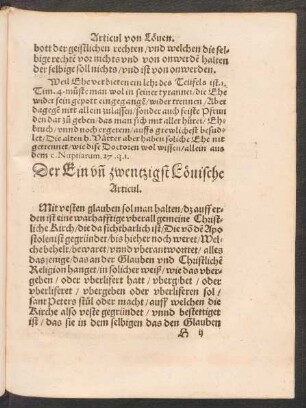 Articul von Löuen.
bott der geistlichen rechten / vnd welchen die sel-
bige rechtē vor nichts vnd von onwerdē halten
der selbige soll nichts / vnd ist von onwerden.
Weil Ehe verbieten ein lehr des Teüfels ist. 1.
Tim. 4. müste man wol in seiner tyrannei / die Ehe
wider sein gepott eingegangē / wider trennen / Aber
dagegē nitt allein zulassen / sonder auch feiste Pfrün
den dar zů geben / das man sich mit aller hůrei / Eh
bruch / vnnd noch ergerem / auffs grewlichest besud-
let / Die alten h. Vätter aber haben solche Ehe nit
getrennet / wie dise Doctoren wol wissen / allein aus
dem c. Nuptiarum. 27. q. 1.
Der Ein vñ zwentzigst Löuische
Articul.
Mit vesten glauben sol man halten / dz auff er-
den ist eine warhafftige vberall gemeine Christ-
liche Kirch / die da sichtbarlich ist / Die võ dē Apo
stolen ist gegründet / biß hieher noch weret / Wel-
che behelt / bewaret / vnnd vberantwortet / alles
das jenige / das an der Glauben vnd Christliche
Religion hanget / in solicher weiß / wie das vber-
geben / oder vberlifert hatt / vbergibet / oder
vberliferet / vbergeben oder vberliferen sol /
sant Peters stůl oder macht / auff welchen die
Kirche also veste gegründet / vnnd bestettiget
ist / das sie in dem selbigen das den Glauben
H ij